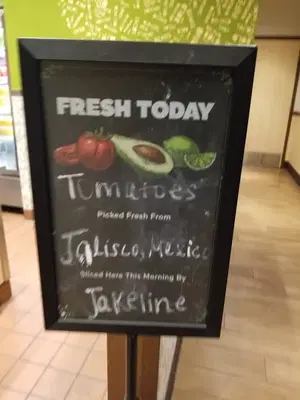 FRESH TODAY
Tomatoes
Picked Fresh From
Jalisco, Mexico
Sliced Here This Morning By
Jakeline